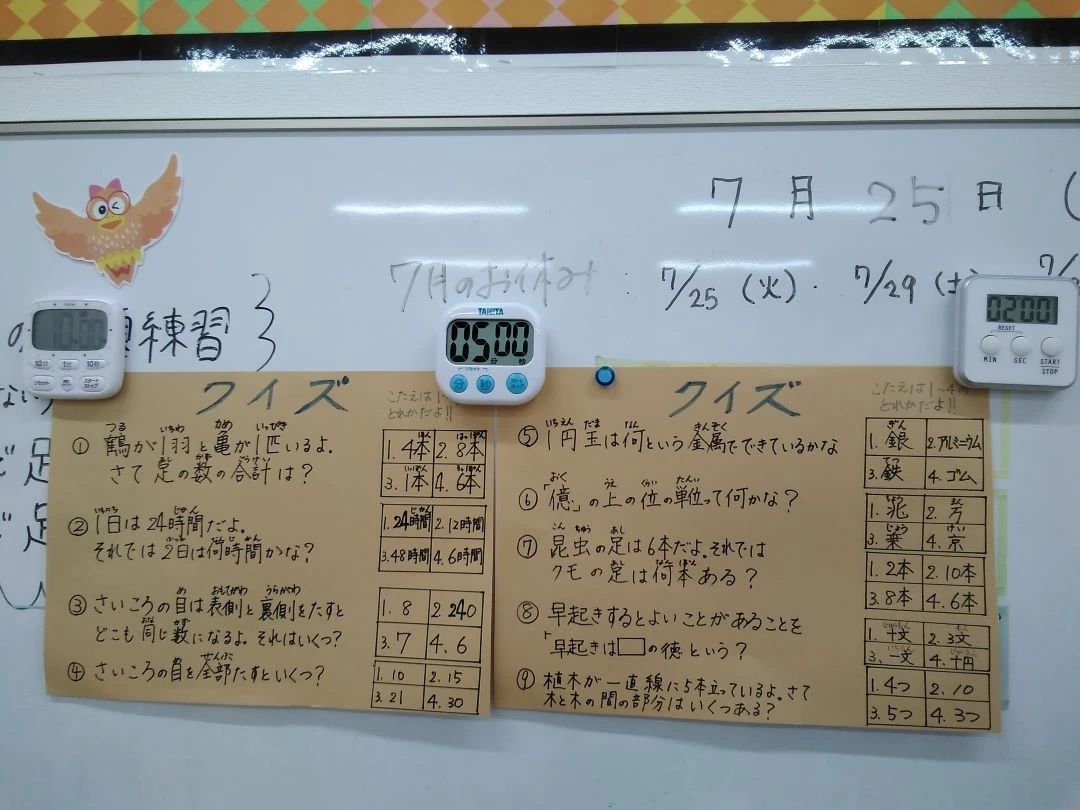 7月25日(
7月のお休み 7/25(火). 7/29(土)
練習
10:00
10分 1分 10秒
リセット スタート ストップ
TANITA
05分00秒
リセット
分 秒 スタート ストップ
02:00
RESET
MIN SEC START STOP
クイズ
こたえは1~
どれかだよ!!
① 鶴が1羽と亀が1匹いるよ。
さて足の数の合計は?
1. 4本 2. 8本
3. 1本 4. 6本
② 1日は24時間だよ。
それでは2日は何時間かな?
1. 24時間 2. 12時間
3. 48時間 4. 6時間
③ さいころの目は表側と裏側をたすと
どこも同じ数になるよ。それはいくつ?
1. 8 2. 240
3. 7 4. 6
④ さいころの目を全部たすといくつ?
1. 10 2. 15
3. 21 4. 30
クイズ
こたえは1~4の
どれかだよ!!
⑤ 1円玉は何という金属でできているかな
1. 銀 2. アルミニウム
3. 鉄 4. ゴム
⑥ 「億」の上の位の単位って何かな?
1. 兆 2. 万
4. 京
⑦ 昆虫の足は6本だよ。それでは
クモの足は何本ある?
1. 2本 2. 10本
3. 8本 4. 6本
⑧ 早起きするとよいことがあることを
「早起きは□の徳という?
1. 十文 2. 3文
3. 一文 4. 十円
⑨ 植木が一直線に5本立っているよ。さて
木と木の間の部分はいくつある?
1. 4つ 2. 10
3. 5つ 4. 3つ